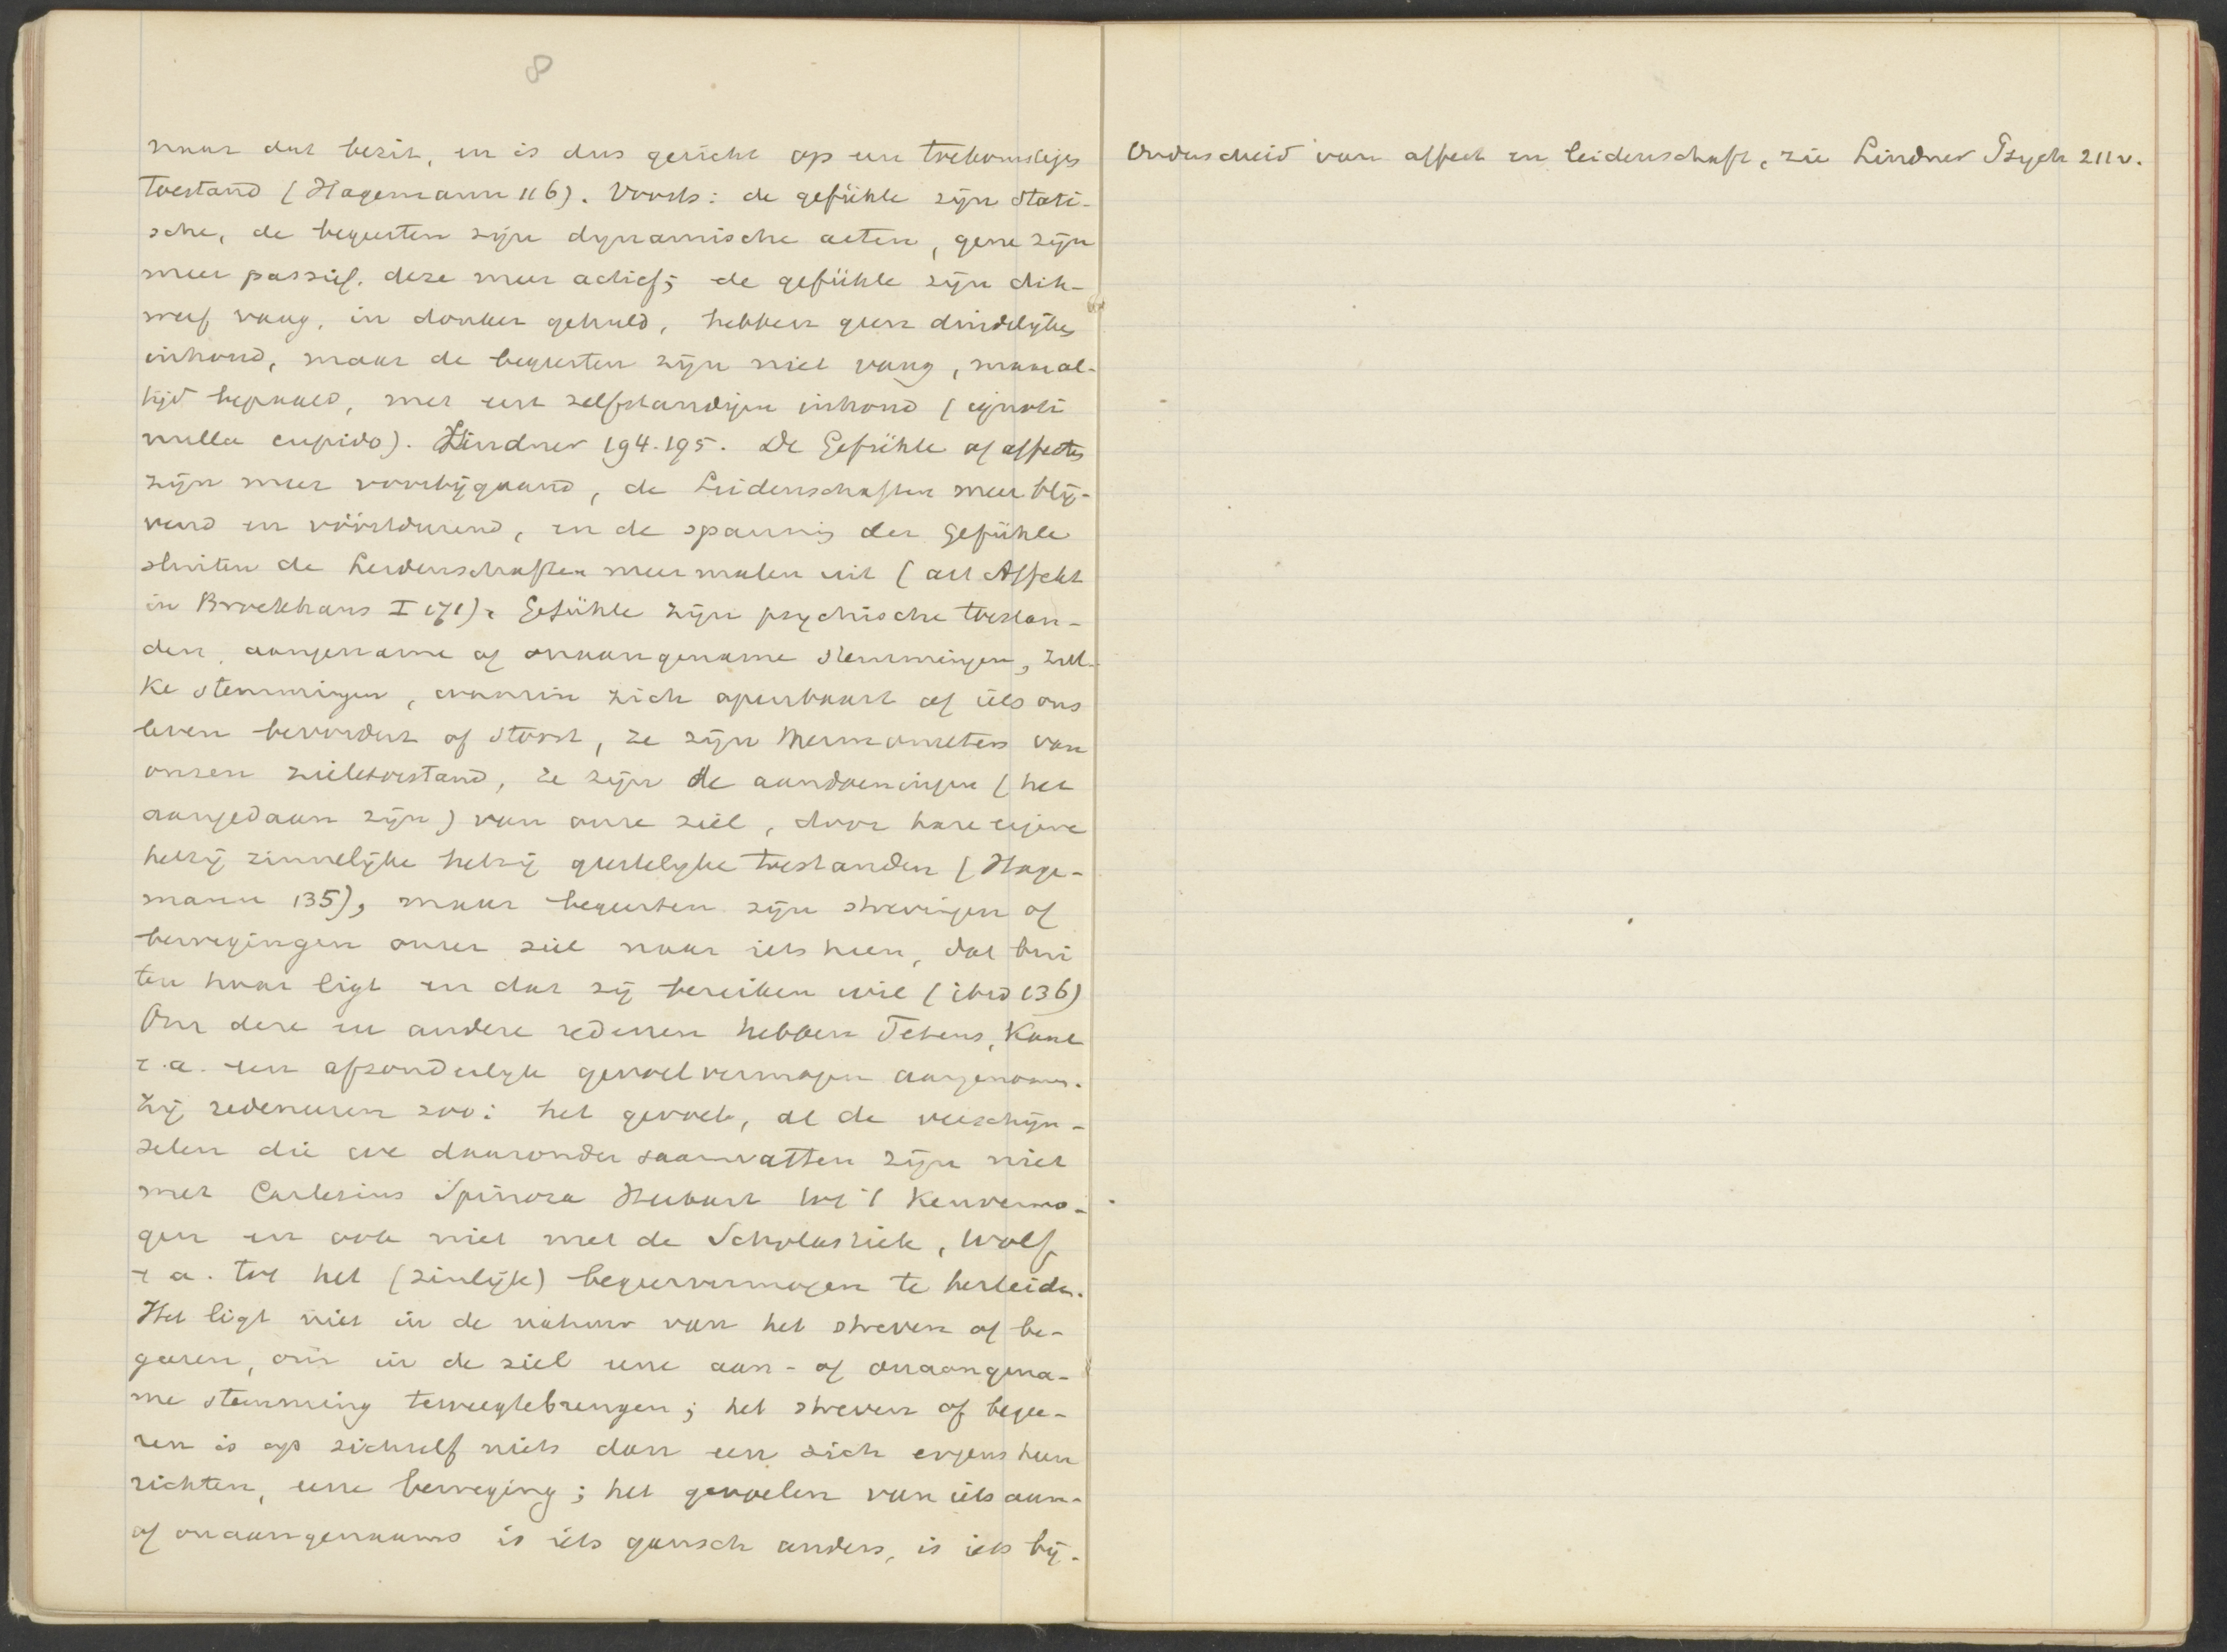 8
naar dat bezit, en is dus gericht op een toekomstigen
toestand (Hagemann 116). Voorts: de gefühle zijn stati-
sche, de begeerten zijn dynamische acten, gene zijn
meer passief, deze meer actief; de gefühle zijn dik-
werf vaag, in donker gehuld, hebben geen duidelijken
inhoud, maar de begeerten zijn niet vaag, maar al-
tijd bepaald, met een zelfstandigen inhoud (ignoti
nulla cupido). Lindner 194.195. De Gefühle of affecten
zijn meer voorbijgaand, de Leidenschaften meer blij-
vend en vóórtdurend, en de spanning der Gefühle
sluiten de Leidenschaften meermalen uit (art Affekt
in Brockhaus I 171). Gefühle zijn psychische toestan-
den, aangename of onaangename stemmingen, zul-
ke stemmingen, waarin zich openbaart of iets ons
leven bevordert of stoort, ze zijn thermometers van
onzen zieletoestand, ze zijn de aandoeningen (het
aangedaan zijn) van onze ziel, door hare eigene
hetzij zinnelijke hetzij geestelijke toestanden (Hage-
mann 135), maar begeerten zijn strevingen of
bewegingen onzer ziel naar iets heen, dat bui
ten haar ligt en dat zij bereiken wil (ibid 136)
Om deze en andere redenen hebben Tetens, Kant
e.a. een afzonderlijk gevoelvermogen aangenomen.
Zij redeneeren zoo: het gevoel, al de verschijn-
selen die we daaronder saamvatten zijn niet
met Cartesius Spinoza Herbart tot 't kenvermo-
gen en ook niet met de Scholastiek, Wolf
e a. tot het (zinlijk) begeervermogen te herleiden.
Het ligt niet in de natuur van het streven of be-
geeren, om in de ziel eene aan- of onaangena-
me stemming teweegtebrengen; het streven of begee-
ren is op zichzelf niets dan een zich ergens heen
richten, eene beweging; het gevoelen van iets aan-
of onaangenaams is iets gansch anders, is iets bij-
Onderscheid van affect en leidenschaft, zie Lindner Psych 211v.